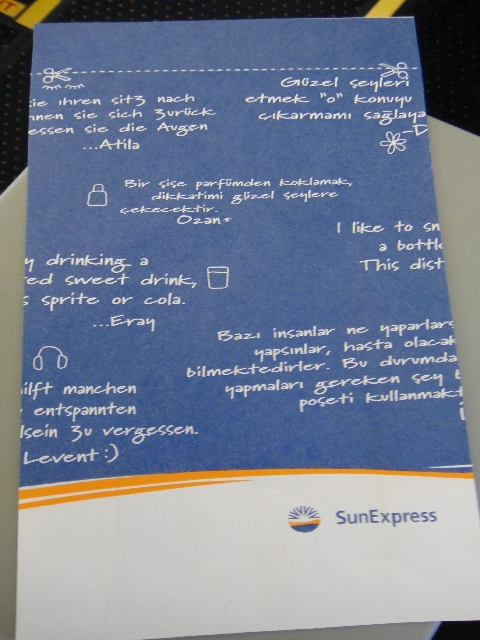 ie ihren sitz nach
nnen sie sich zurück
essen sie die Augen
...Atila
Güzel şeyleri
etmek "o" konuyu
çıkarmamı sağlaya
-D
Bir şişe parfümden koklamak,
dikkatimi güzel şeylere
çekecektir.
Ozan*
I like to sn
a bottle
This dist
y drinking a
red sweet drink,
s sprite or cola.
...Eray
Bazı insanlar ne yaparlars
yapsınlar, hasta olacak
bilmektedirler. Bu durumda
yapmaları gereken şey
poşeti kullanmakt
ilft manchen
entspannten
lsein zu vergessen.
Levent :)
SunExpress